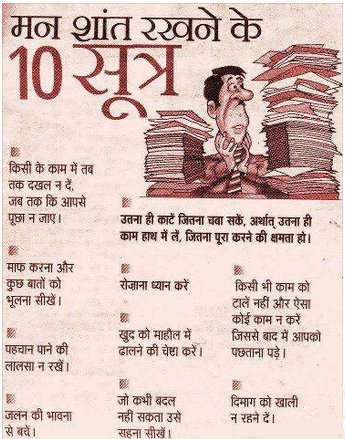 मन शांत रखने के
10 सूत्र
किसी के काम में तब
तक दखल न दें,
जब तक कि आपसे
पूछा न जाए।
उतना ही काटें जितना चबा सकें, अर्थात् उतना ही
काम हाथ में लें, जितना पूरा करने की क्षमता हो।
माफ करना और
कुछ बातों को
भूलना सीखें।
रोजाना ध्यान करें
किसी भी काम को
टालें नहीं और ऐसा
कोई काम न करें
जिससे बाद में आपको
पछताना पड़े।
पहचान पाने की
लालसा न रखें।
खुद को माहौल में
ढालने की चेष्टा करें।
जलन की भावना
से बचें।
जो कभी बदल
नहीं सकता उसे
सहना सीखें।
दिमाग को खाली
न रहने दें।